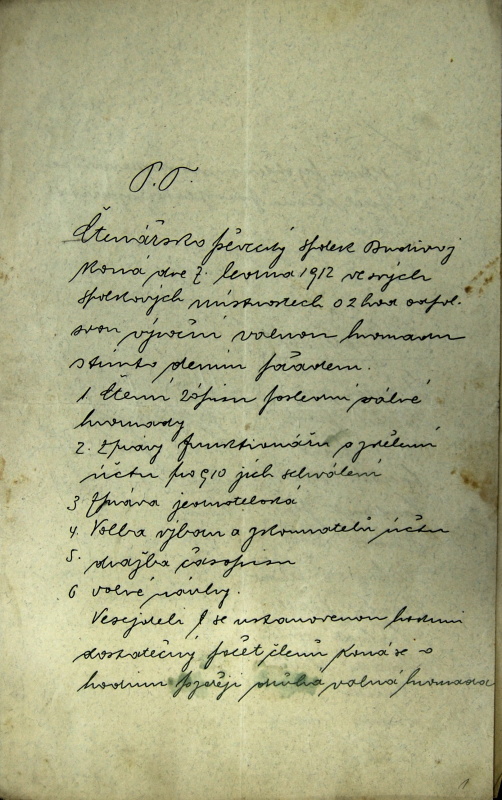 P. T.
Čtenářsko pěvecký spolek Budivoj
koná dne 7. ledna 1912 ve svých
spolkových místnostech o 2 hod odpol-
svou výroční valnou hromadu
s tímto denním pořadem.
1 Čtení zápisu poslední valné
hromady
2. Zprávy funkcionářů o zdělení
účtu jich schválení
3 Zpráva jednatelská
4. Volba výboru a zkoumatelů účtu
5. dražba časopisu
6 volné návrhy.
Nesejdeli se v ustanovenou hodinu
dostatečný počet členů koná se o
hodinu později druhá valná hromada